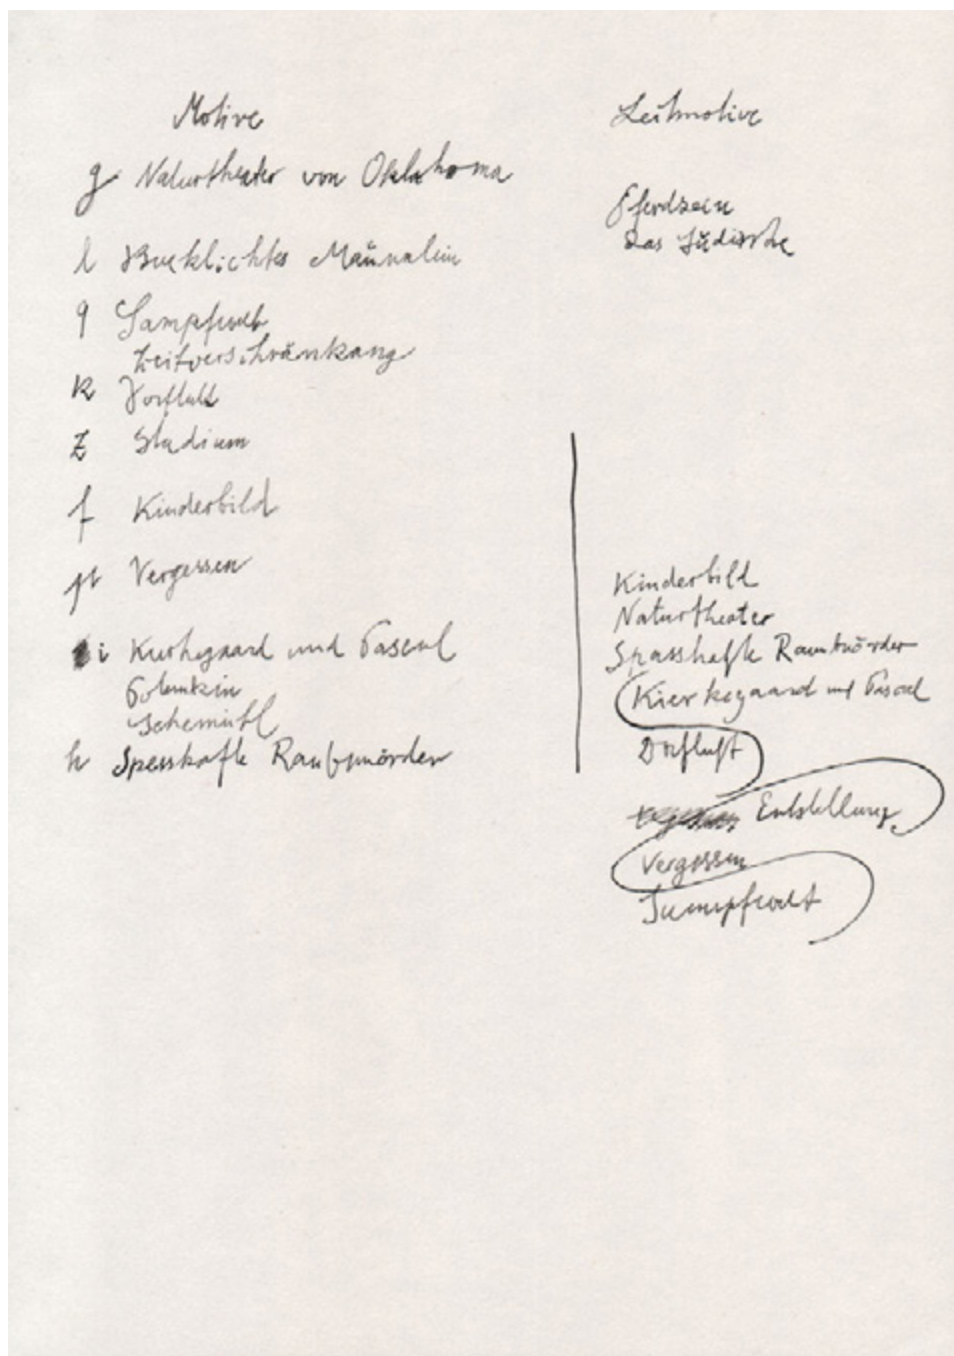 Motive
g Naturtheater von Oklahoma
l Bucklichtes Männalein
q Sampfwelt
Zeitverschränkang
k Dorfluft
Z Studium
f Kinderbild
Vergessen
i Kierkegaard und Pascal
Potemkin
Schemihl
h Spasshafte Raubmörder
Leitmotive
Pferdsein
Das Jüdische
Kinderbild
Naturtheater
Spasshafte Raubmörder
Kierkegaard und Pascal
Dorfluft
Entstellung
Vergessen
Sumpfwelt